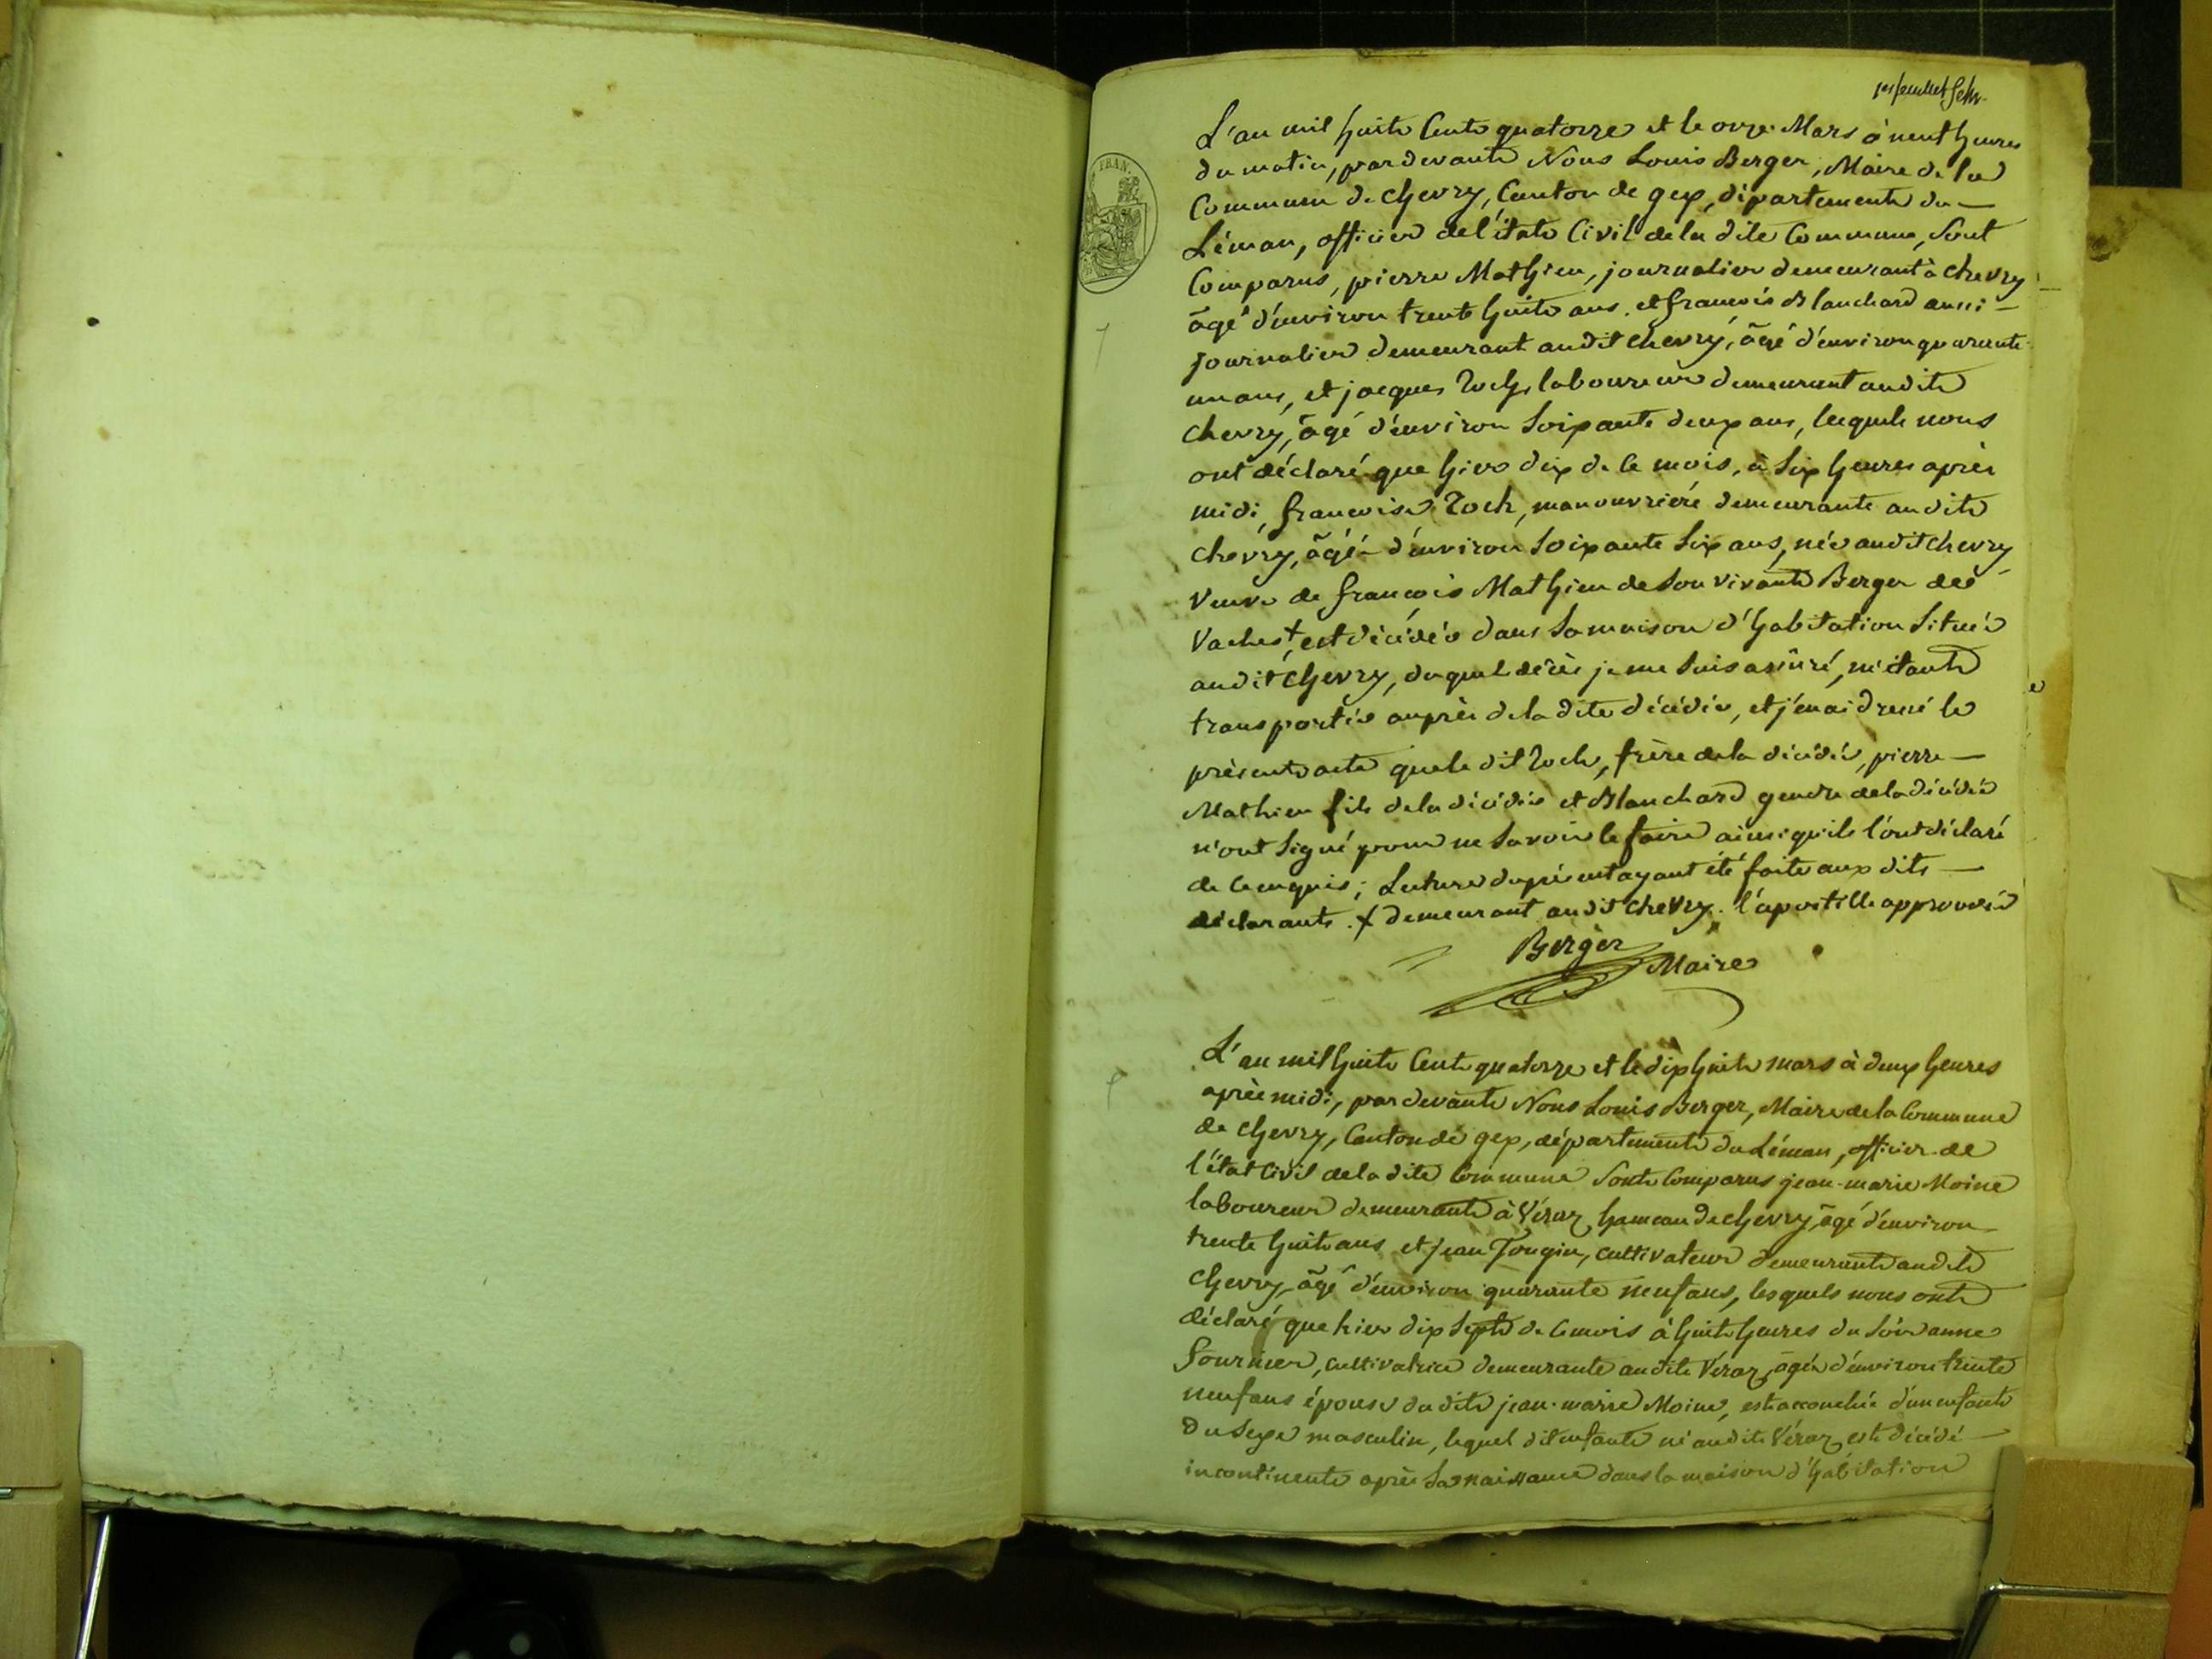 1er feuillet
FRAN.
L'an mil huit Cent quatorze et le onze Mars à neuf heures
du matin, pardevant Nous Louis Berger, Maire de la
Commune de Chevry, Canton de gex, département du —
Léman, officier de l'état Civil de la dite Commune, Sont
Comparus, pierre Mathieu, journalier demeurant à Chevry
âgé d'environ trente huit ans, et françois Blanchard aussi —
journalier demeurant audit chevry, âgé d'environ quarante
un ans, et jacques Roch, laboureur demeurant audit
chevry, âgé d'environ Soixante deux ans, lesquels nous
ont déclaré que hier dix de Ce mois, à Six heures après
midi, françoise Roch, manouvrière demeurante audit
chevry, âgée d'environ Soixante Six ans, née audit chevry
Veuve de françois Mathieu de Son vivant Berger des
Vaches +, est décédée dans Sa maison d'habitation Située
audit Chevry, duquel décès je me Suis assuré, m'étant
transporté auprès de la dite décédée, et j'en ai dressé le
présent acte que le dit Roch, frère de la décédée, pierre —
Mathieu fils de la décédée et Blanchard gendre de la décédée
n'ont Signé pour ne Savoir le faire ainsi qu'ils l'ont déclaré
de Ce enquis; Lecture du présent ayant été faite aux dits —
déclarants. + demeurant audit Chevry. l'apostille approuvée
Berger
Maire
L'an mil huit Cent quatorze et le dix huit mars à deux heures
après midi, pardevant Nous Louis Berger, Maire de la Commune
de Chevry, Canton de gex, département du Léman, officier de
l'état Civil de la dite Commune Sont Comparus jean-marie Moine
laboureur demeurant à Véraz, hameau de Chevry, âgé d'environ
trente huit ans et jean Tougin, cultivateur demeurant audit
Chevry, âgé d'environ quarante neuf ans, lesquels nous ont
déclaré que hier dix Sept de Ce mois à huit heures du Soir anne
fournier, cultivatrice demeurante audit Véraz, âgée d'environ trente
neuf ans épouse du dit jean-marie Moine, est accouchée d'un enfant
Du Sexe masculin, lequel dit enfant né audit Véraz, est décédé —
incontinent après Sa naissance dans la maison d'habitation